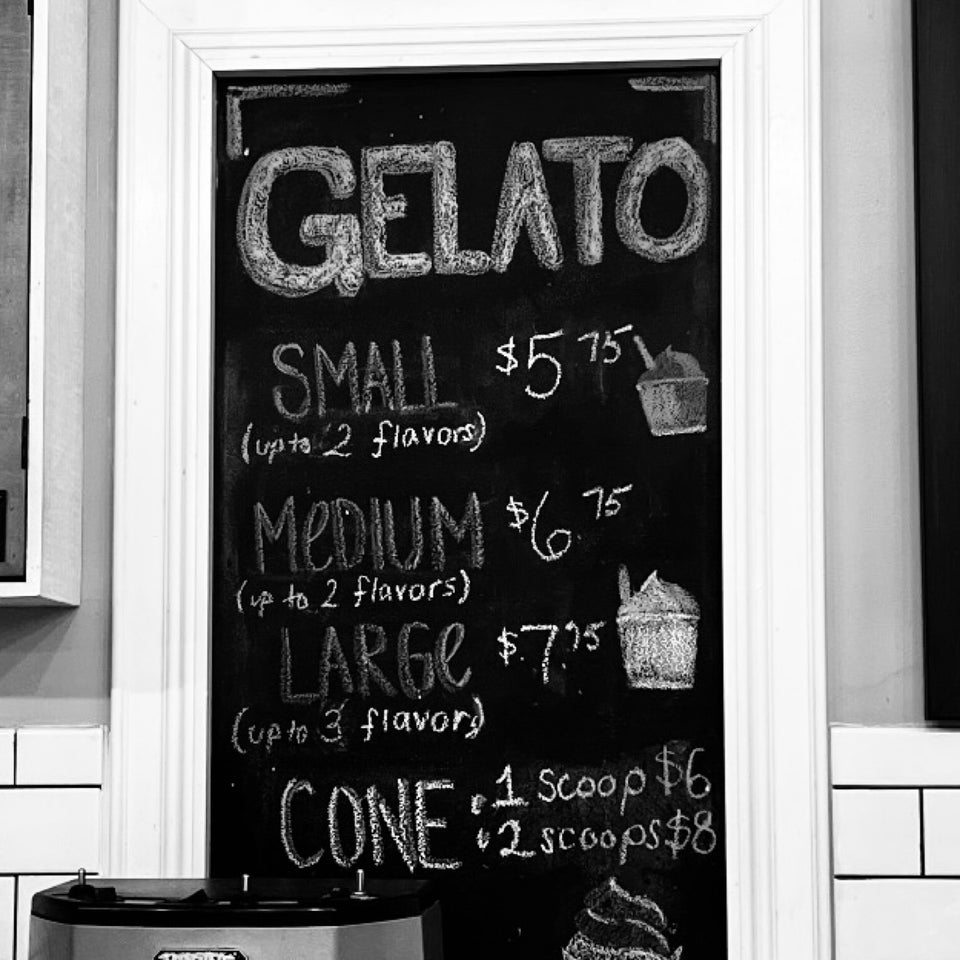 GELATO
SMALL $5 75
(up to 2 flavors)
MeDIUM $6 75
(up to 2 flavors)
LARGe $7.75
(up to 3 flavors)
CONE • 1 scoop $6
• 2 scoops $8